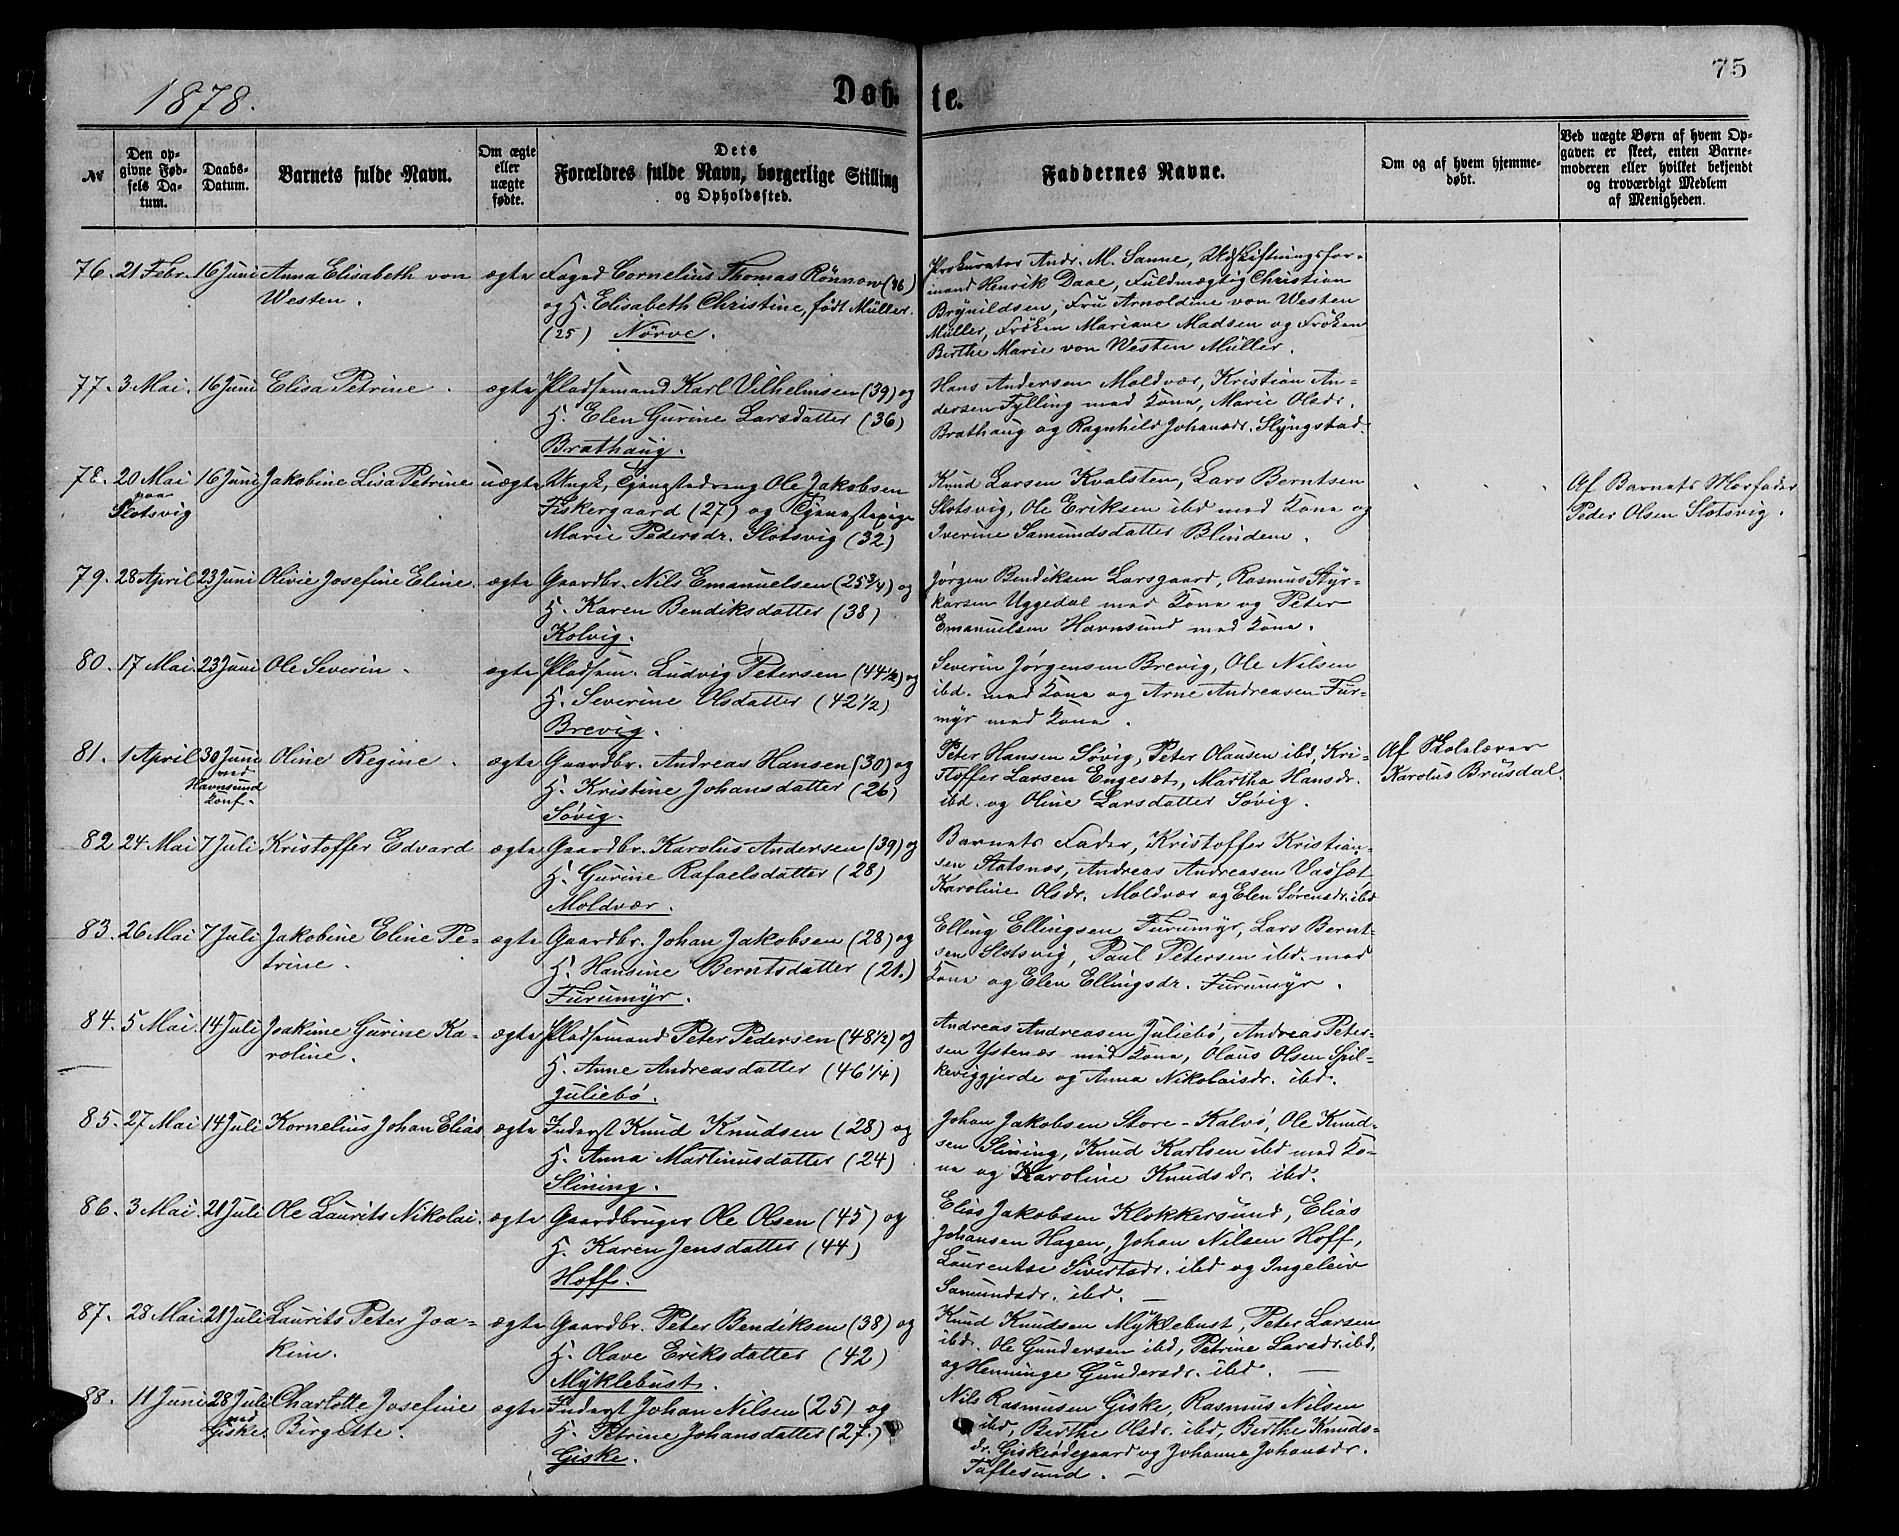 1878.
Døb-
te.
75
№
Den op-
givne Fød-
sels Da-
tum.
Daabs-
Datum.
Barnets fulde Navn.
Om ægte
eller
uægte
fødte.
Dets
Forældres fulde Navn, borgerlige Stilling
og Opholdssted.
Faddernes Navne.
Om og af hvem hjemme-
døbt.
Ved uægte Børn af hvem Op-
gaven er skeet, enten Barne-
moderen eller hvilket bekjendt
og troværdigt Medlem
af Menigheden.
76. 21 Febr. 16 Juni Anna Elisabeth von
Westen.
ægte Foged Cornelius Thomas Rönnow (36)
og H. Elisabeth Christine, født Müller.
(25) Nörve.
Prokurator Andr. M. Sanne, Udskiftningsfor-
mand Henrik Daae, Fuldmægtig Christian
Brynildsen, Fru Arnoldine von Westen
Müller, Frøken Mariane Madsen og Frøken
Berthe Marie von Westen Müller.
77. 3 Mai. 16 Juni Elisa Petrine.
ægte Pladsemand Karl Vilhelmsen (39) og
H. Elen Gurine Larsdatter (36)
Brathaug.
Hans Andersen Moldvær, Kristian An-
dersen Fylling med Kone, Marie Olsdr.
Brathaug og Ragnhild Johansdr. Slyngstad.
78. 20 Mai 16 Juni Jakobine Lisa Petrine
paa
Slotsvig
uægte Ungk. Tjenestedreng Ole Jakobsen
Fiskergaard (27) og Tjenestepige
Marie Pedersdr. Slotsvig (32)
Knud Larsen Kvalsten, Lars Berntsen
Slotsvig, Ole Eriksen ibd med Kone og
Iverine Samundsdatter Blindem.
Af Barnets Morfader
Peder Olsen Slotsvig.
79. 28 April 23 Juni Olivie Josefine Eline.
ægte Gaardbr. Nils Emanuelsen (25 3/4) og
H. Karen Bendiksdatter (38)
Kolvig.
Jørgen Bendiksen Larsgaard, Rasmus Styr-
karsen Uggedal med Kone og Peter
Emanuelsen Havnsund med Kone.
80. 17 Mai. 23 Juni Ole Severin.
ægte Pladsem. Ludvig Petersen (44 1/2) og
H. Severine Olsdatter (42 1/2)
Brevig.
Severin Jørgensen Brevig, Ole Nilsen
ibd. med Kone og Arne Andreasen Fur-
myr med Kone.
81. 1 April 30 Juni Oline Regine.
ved
Havnsund
Konf.
ægte Gaardbr. Andreas Hansen (30) og
H. Kristine Johansdatter (26)
Søvig.
Peter Hansen Søvig, Peter Olausen ibd, Kri-
stoffer Larsen Engesæt, Martha Hansdr.
ibd. og Oline Larsdatter Søvig.
Af Skolelærer
Karolus Brusdal.
82 24 Mai 7 Juli Kristoffer Edvard
ægte Gaardbr. Karolus Andersen (39) og
H. Gurine Rafaelsdatter (28)
Moldvær.
Barnets Fader, Kristoffer Kristian-
sen Slatsnæs, Andreas Andreasen Vassæt,
Karoline Olsdr. Moldvær og Elen Sørensdr. ibd
83. 26 Mai 7 Juli Jakobine Eline Pe-
trine.
ægte Gaardbr. Johan Jakobsen (28) og
H. Hansine Berntsdatter (21.)
Furumyr.
Elling Ellingsen Furumyr, Lars Bernt-
sen Slotsvig, Paul Petersen ibd. med
Kone og Elen Ellingsdr. Furumyr.
84. 5 Mai. 14 Juli Joakime Gurine Ka-
roline.
ægte Pladsemand Peter Pedersen (48 1/2) og
H. Anne Andreasdatter (46 1/4)
Juliebø.
Andreas Andreasen Juliebø, Andreas Peter-
sen Ystenæs med Kone, Olaus Olsen Spil-
keviggjerde og Anna Nikolaisdr. ibd.
85. 27 Mai 14 Juli Kornelius Johan Elias
ægte Inderst Knud Knudsen (28) og
H. Anna Martinusdatter (24)
Slining.
Johan Jakobsen Store-Kalvø, Ole Knud-
sen Slining, Knud Karlsen ibd med Ko-
ne og Karoline Knudsdr. ibd.
86. 3 Mai. 21 Juli Ole Laurits Nikolai.
ægte Gaardbruger Ole Olsen (45) og
H. Karen Jensdatter (44)
Hoff.
Elias Jakobsen Klokkersund, Elias
Johansen Hagen, Johan Nilsen Hoff,
Laurentse Sivertsdr. ibd og Ingeleiv
Samundsdr. ibd.
87. 28 Mai. 21 Juli Laurits Peter Joa-
kim.
ægte Gaardbr. Peter Bendiksen (38) og
H. Olave Eriksdatter (42)
Myklebust.
Knud Knudsen Myklebust, Peter Larsen
ibd. Ole Gundersen ibd, Petrine Larsdr. ibd,
og Henninge Gundersdr. ibd.
88. 11 Juni 28 Juli Charlotte Josefine
ved
Giske. Birgitte.
ægte Inderst Johan Nilsen (25) og
H. Petrine Johansdatter (27.)
Giske.
Nils Rasmusen Giske, Rasmus Nilsen
ibd, Berthe Olsdr. ibd, Berthe Knuds-
dr. Giskeødegaard og Johanne Johansdr.
Tuftesund.